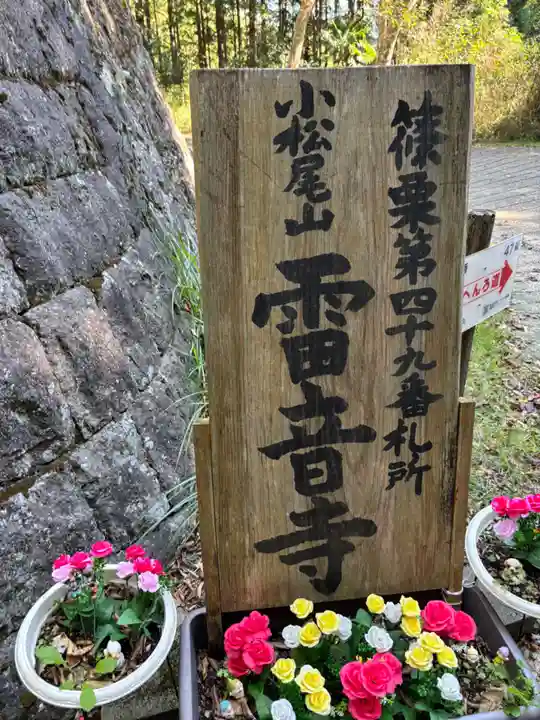 篠栗第四十九番札所
小松尾山
雷音寺
へんろ道